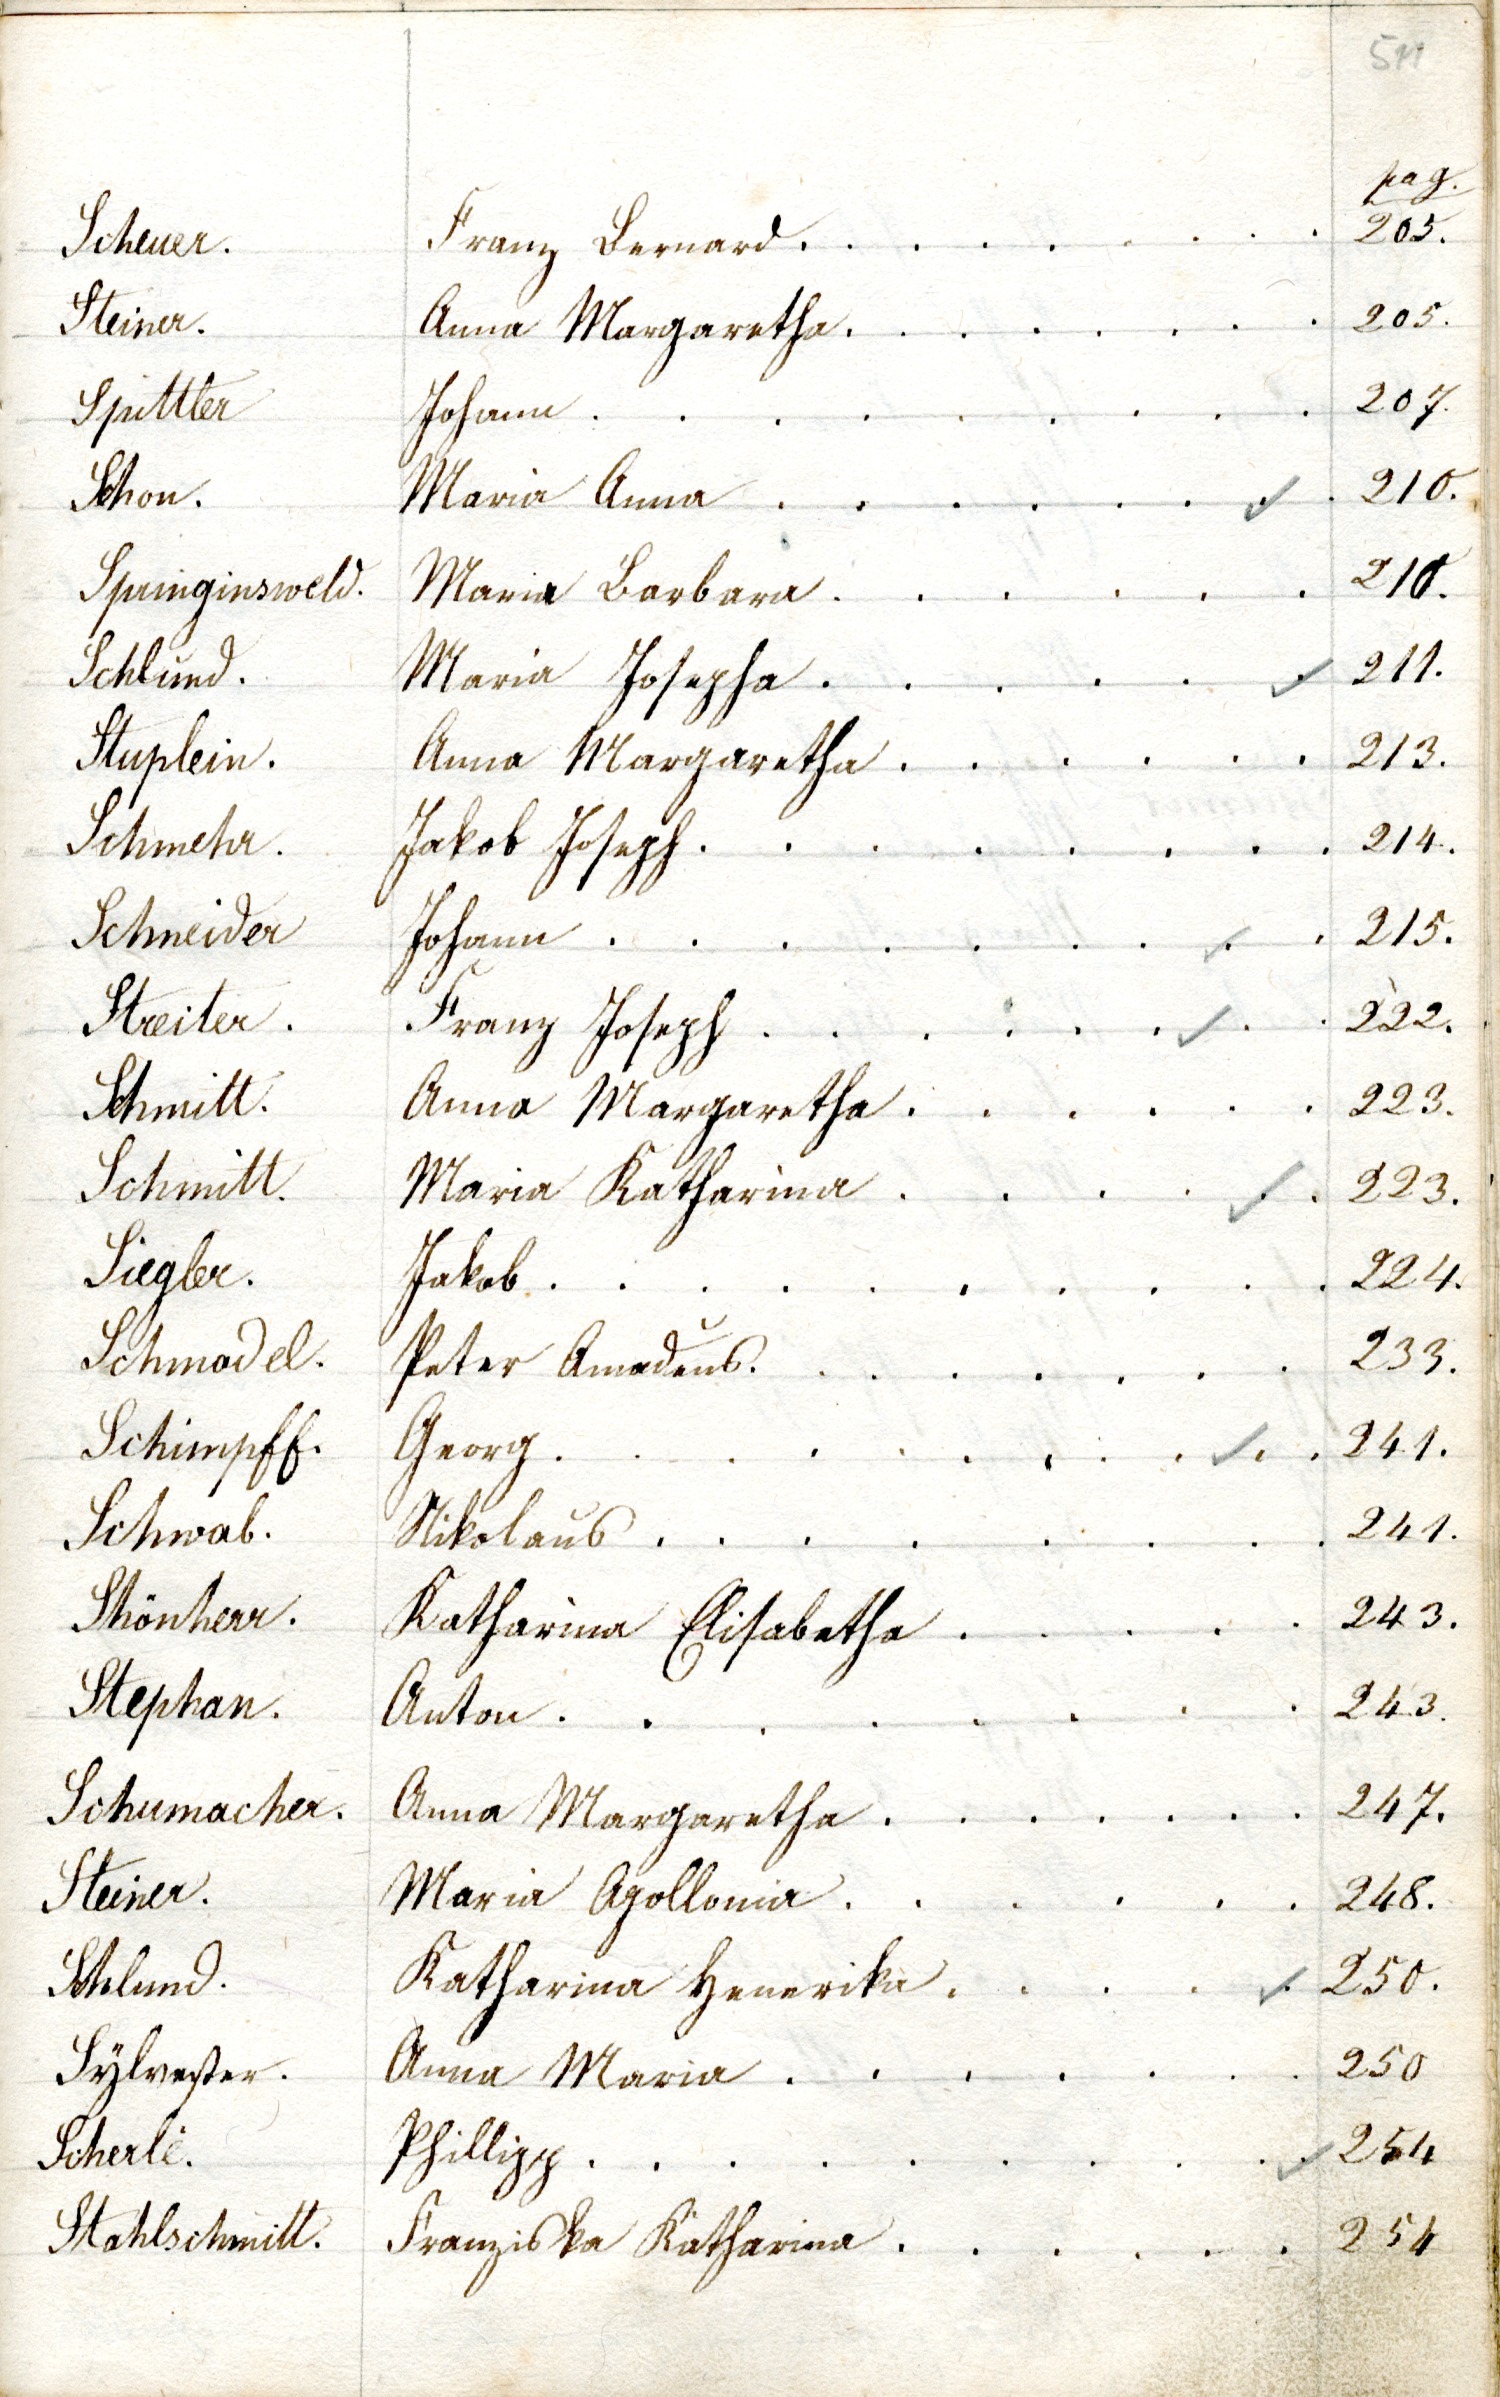 pag.
Scheuer. Franz Bernard. . . . . . . . 205.
Steiner. Anna Margaretha. . . . . . . 205.
Spittler Johann . . . . . . . . . 207.
Schon. Maria Anna . . . . . . ✓ . 210.
Springinsweld. Maria Barbara . . . . . . 210.
Schlund. Maria Josepha . . . . . ✓ 211.
Stuplein. Anna Margaretha . . . . . . 213.
Schmehr. Jakob Joseph . . . . . . . . 214.
Schneider Johann . . . . . . . ✓ . 215.
Streiter. Franz Joseph . . . . . . ✓ . . 222.
Schmitt. Anna Margaretha . . . . . . 223.
Schmitt. Maria Katharina . . . . ✓ . 223.
Siegler. Jakob . . . . . . . . . . 224.
Schmadel. Peter Amadeus. . . . . . . 233.
Schimpff. Georg . . . . . . . . ✓ . . 241.
Schwab. Nikolaus . . . . . . . . 241.
Schönherr. Katharina Elisabetha . . . . . 243.
Stephan. Anton . . . . . . . . . 243.
Schumacher. Anna Margaretha . . . . . . . 247.
Steiner. Maria Apollonia . . . . . . 248.
Schlund. Katharina Henerika . . . . ✓ 250.
Sÿlvester. Anna Maria . . . . . . . 250
Scherlé. Phillipp . . . . . . . . ✓ 254
Stahlschmitt. Franziska Katharina . . . . . . 254